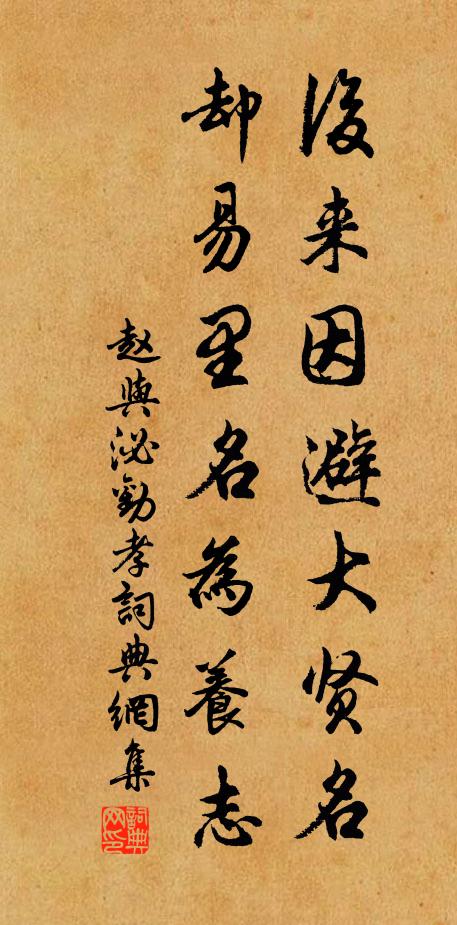 後来因避大贤名
却易里名為養志
赵與泌勸孝詞典網集
詞典网印